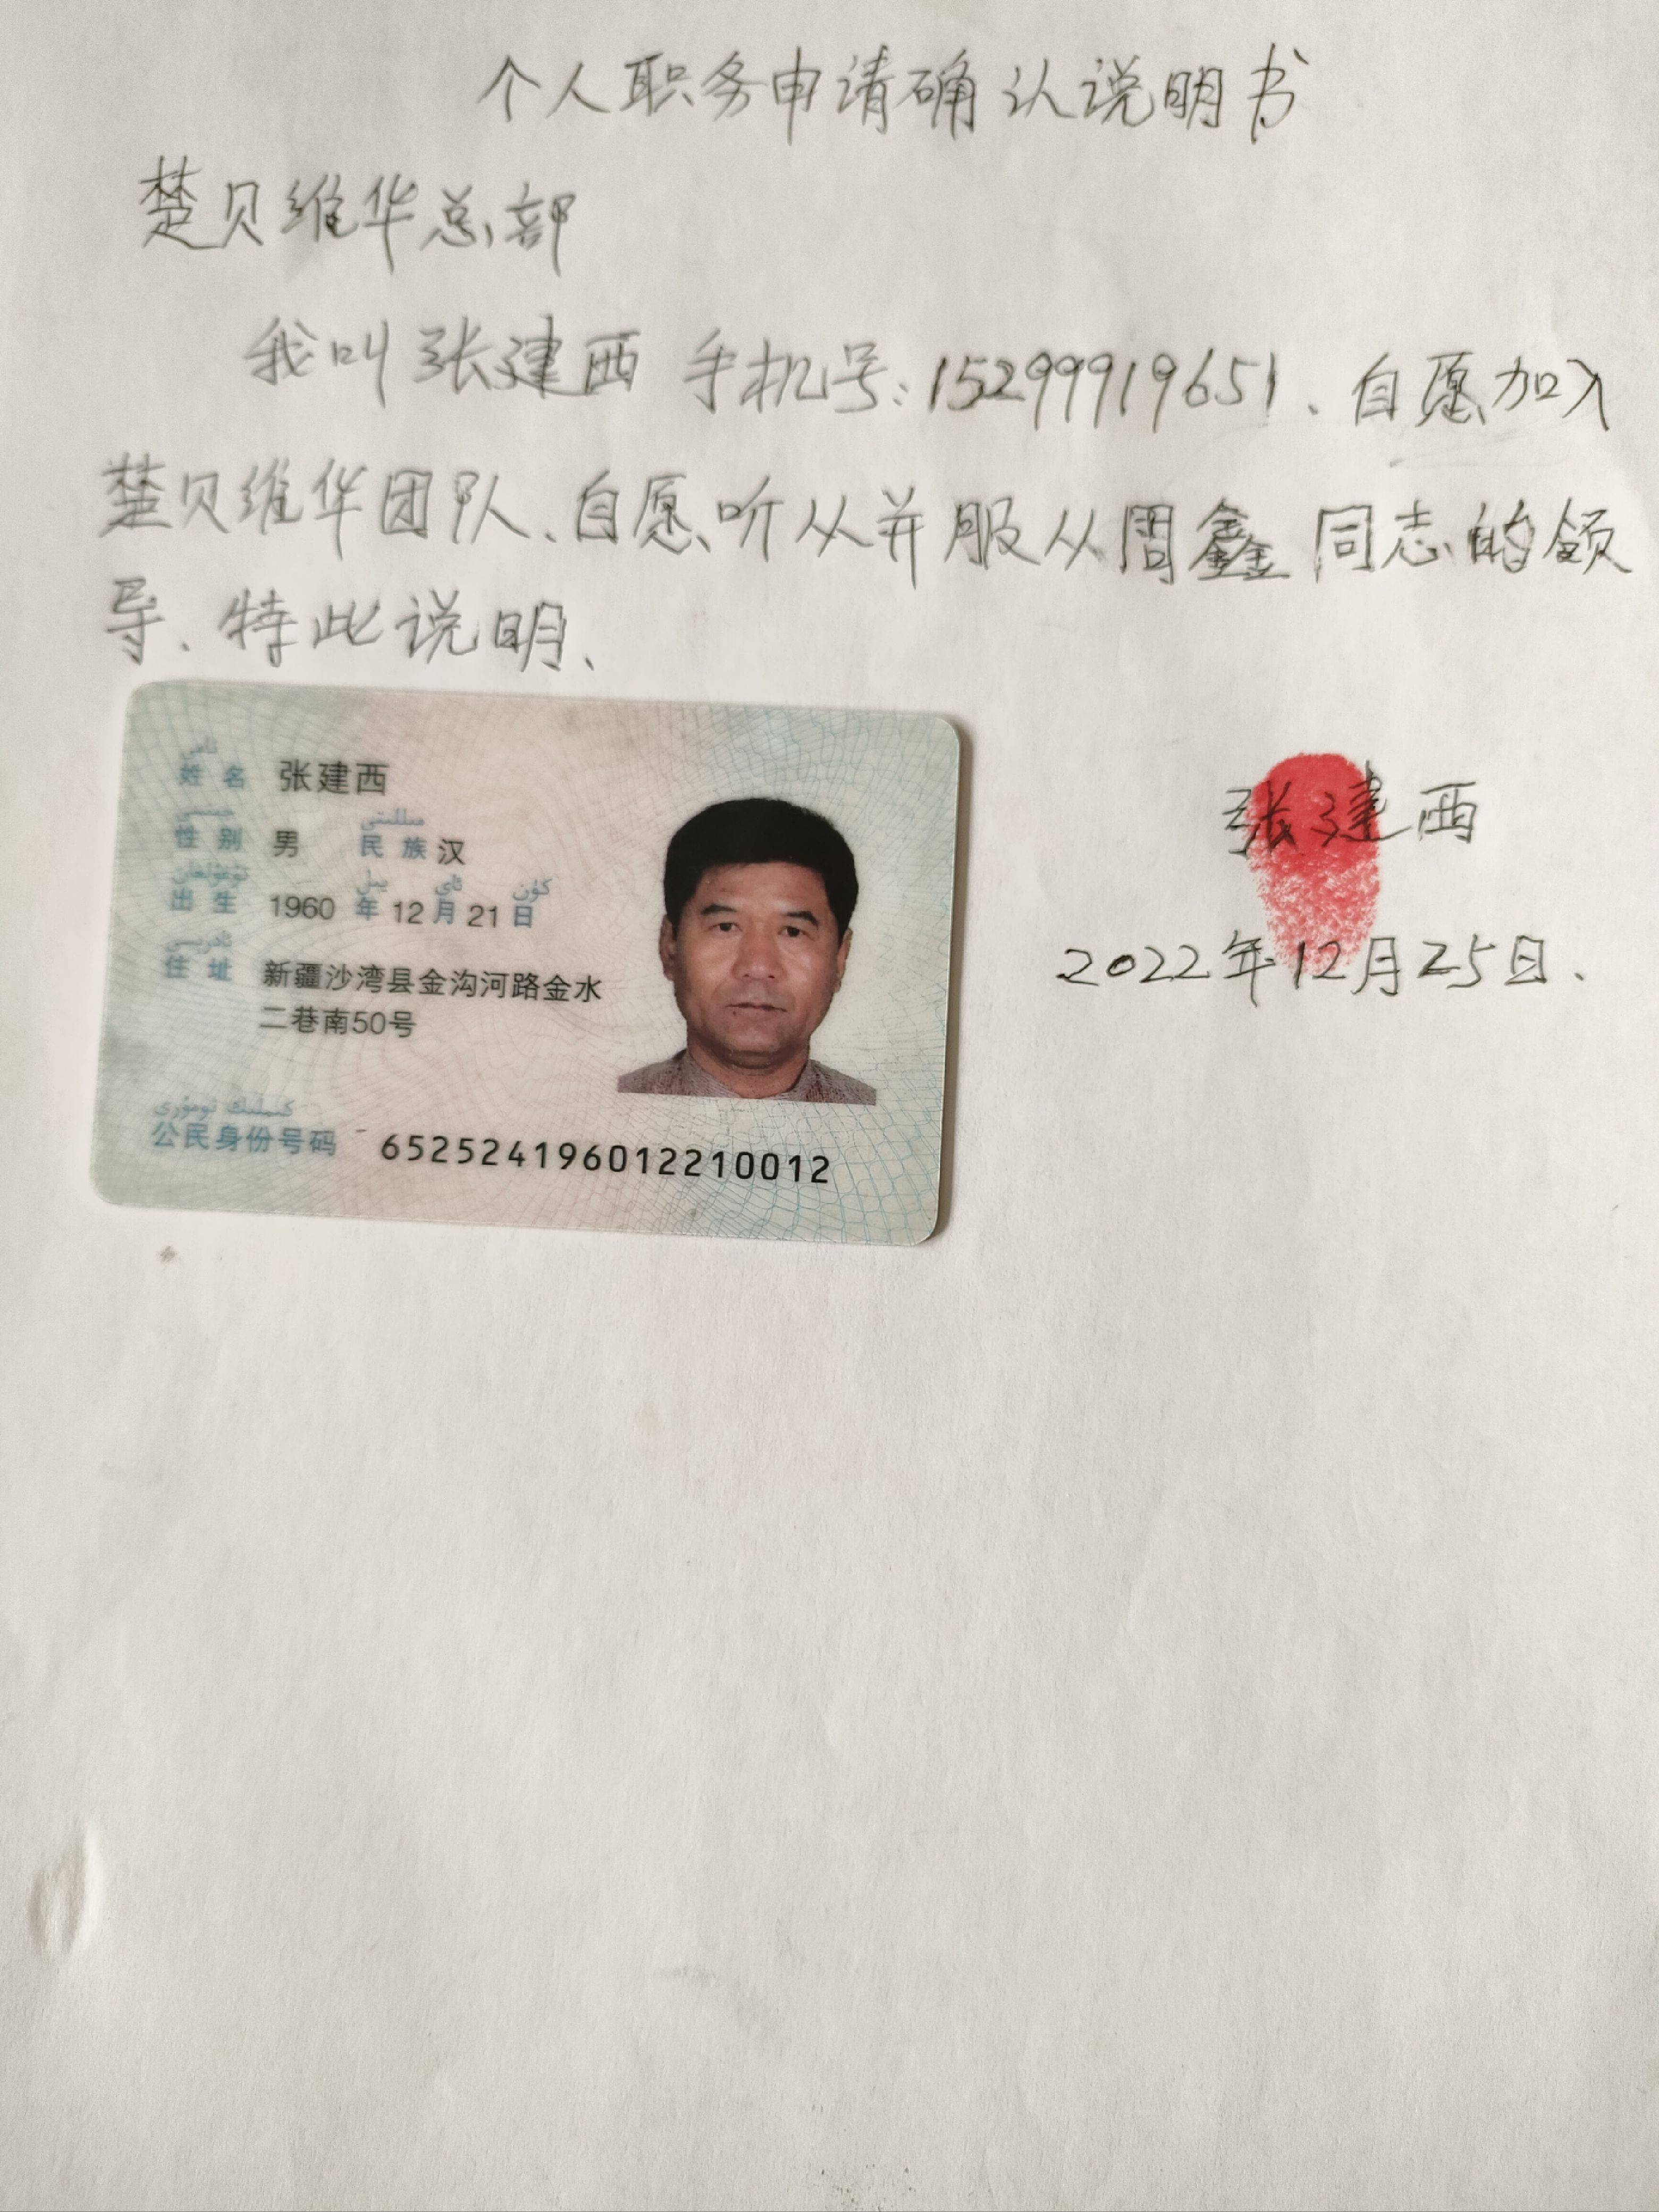 个人职务申请确认说明书
楚贝维华总部
我叫张建西 手机号:15299919651、自愿加入
楚贝维华团队、自愿听从并服从周鑫同志的领
导、特此说明、
姓名 张建西
性别 男 民族 汉
出生 1960年12月21日
住址 新疆沙湾县金沟河路金水
二巷南50号
كىملىك نومۇرى
公民身份号码 652524196012210012
张建西
2022年12月25日、